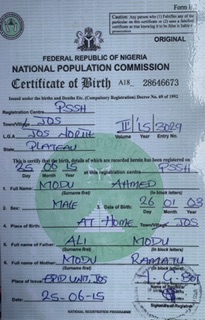 Form B.1
Caution: Any person who (1) Falsifies any of the
particulars on this certificate, or (2) uses a falsified
certificate as true knowing it to be false is liable to
prosecution.
ORIGINAL
FEDERAL REPUBLIC OF NIGERIA
NATIONAL POPULATION COMMISSION
Certificate of Birth A18_ 28646673
Issued under the Births and Deaths Etc. (Compulsory Registration) Decree No. 69 of 1992
Registration Centre PSSH
Town/Village JOS III/15/3029
L.G.A JOS NORTH Volume Year Entry No.
State PLATEAU
This is certify that the birth, details of which are recorded herein has been registered on
25 06 15 PSSH
Day Month Year at this registration centre
1. Full Name: MODU AHMED
(Surname first) (in block letters)
2. Sex: MALE 3. Date of Birth 26 01 03
Day Month Year
4. Place of Birth: AT HOME Town/Village JOS
5. Full name of Father ALI MODU
(Surname first) (in block letters)
6. Full name of Mother MODU RAMATU
(Surname first) (in block letters)
Place of Issue JOS
Date 25-06-15
NATIONAL REGISTRATION PROGRAMME